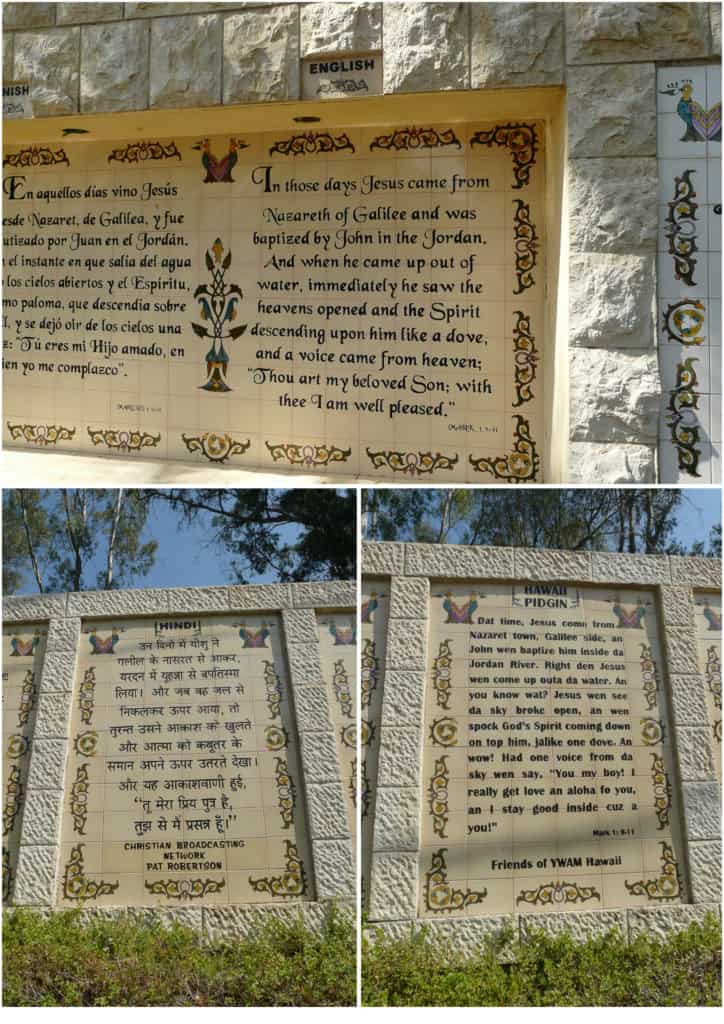 NISH
ENGLISH
En aquellos días vino Jesús
esde Nazaret, de Galilea, y fue
utizado por Juan en el Jordán.
el instante en que salia del agua
los cielos abiertos y el Espíritu,
mo paloma, que descendia sobre
l, y se dejó oir de los cielos una
z: "Tú eres mi Hijo amado, en
ien yo me complazco".
In those days Jesus came from
Nazareth of Galilee and was
baptized by John in the Jordan.
And when he came up out of
water, immediately he saw the
heavens opened and the Spirit
descending upon him like a dove,
and a voice came from heaven;
"Thou art my beloved Son; with
thee I am well pleased."
HINDI
उन दिनों में यीशु ने
गलील के नासरत से आकर,
यरदन में यूहन्ना से बपतिस्मा
लिया। और जब वह जल से
निकलकर ऊपर आया, तो
तुरन्त उसने आकाश को खुलते
और आत्मा को कबूतर के
समान अपने ऊपर उतरते देखा।
और यह आकाशवाणी हुई,
"तू मेरा प्रिय पुत्र है,
तुझ से मैं प्रसन्न हूँ।"
CHRISTIAN BROADCASTING
NETWORK
PAT ROBERTSON
HAWAII
PIDGIN
Dat time, Jesus come from
Nazaret town, Galilee side, an
John wen baptize him inside da
Jordan River. Right den Jesus
wen come up outa da water. An
you know wat? Jesus wen see
da sky broke open, an wen
spock God's Spirit coming down
on top him, jalike one dove. An
wow! Had one voice from da
sky wen say, "You my boy! I
really get love an aloha fo you,
an I stay good inside cuz a
you!"
Mark 1: 9-11
Friends of YWAM Hawaii